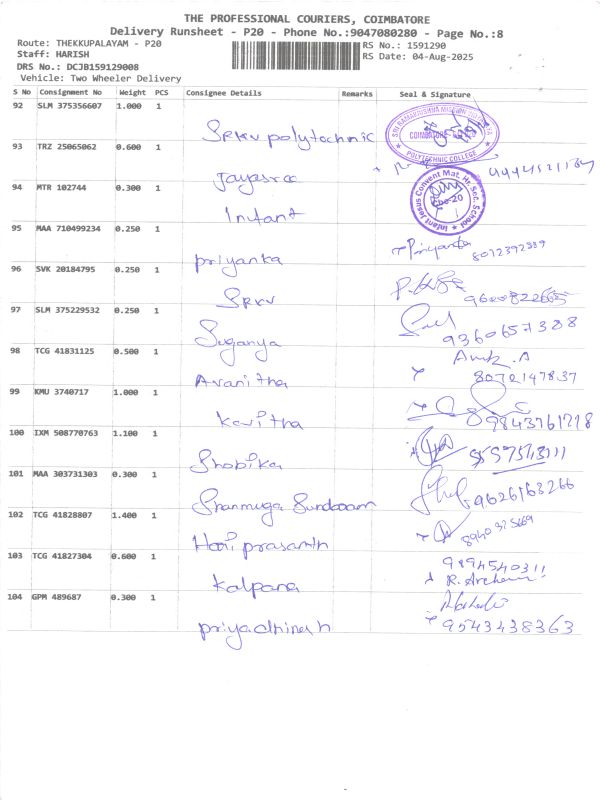 THE PROFESSIONAL COURIERS, COIMBATORE
Delivery Runsheet - P20 - Phone No.:9047080280 - Page No.:8
Route: THEKKUPALAYAM - P20
RS No.: 1591290
Staff: HARISH
RS Date: 04-Aug-2025
DRS No.: DCJB159129008
Vehicle: Two Wheeler Delivery
S No Consignment No Weight PCS Consignee Details Remarks Seal & Signature
92 SLM 375356607 1.000 1
SRKV polytechnic
COIMBATORE
POLYTECHNIC COLLEGE
93 TRZ 25065062 0.600 1
Jayasree
94 MTR 102744 0.300 1
Infant
Infant Jesus Convent Mat. Hr. Sec. School
95 MAA 710499234 0.250 1
priyanka
Priyanka
96 SVK 20184795 0.250 1
SRKV
97 SLM 375229532 0.250 1
Suganya
9360657388
98 TCG 41831125 0.500 1
Avanitha
8072147837
99 KMU 3740717 1.000 1
Kavitha
9843761718
100 IXM 508770763 1.100 1
Shobika
101 MAA 303731303 0.300 1
Shanmuga Sundaram
9626163266
102 TCG 41828807 1.400 1
Hari prasanth
8940325669
103 TCG 41827304 0.600 1
Kalpana
9894540311
104 GPM 489687 0.300 1
priyadhinesh
9543438363